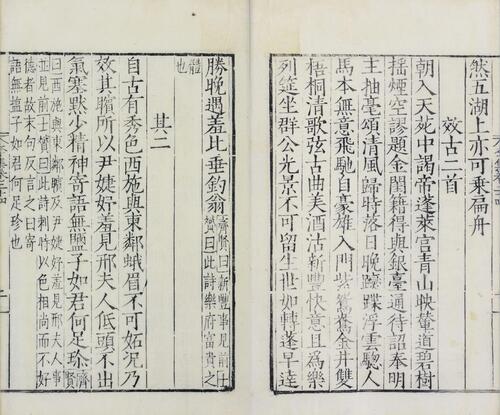 然五湖上亦可乘扁舟
效古二首
朝入天苑中謁帝蓬萊宮青山映輦道碧樹
搖煙空謬題金閨籍得與銀臺通待詔奉明
主抽毫頌清風歸時落日晚躞蹀浮雲驄人
馬本無意飛馳自豪雄入門紫鴛鴦金井雙
梧桐清歌弦古曲美酒沽新豐快意且為樂
列筵坐群公光景不可留生世如轉蓬早達
勝晚遇羞比垂釣翁
齊賢曰新豐事見前士
贇曰此詩樂府富貴之
體
也
其二
自古有秀色西施與東鄰蛾眉不可妬况乃
效其矉所以尹婕妤羞見邢夫人低頭不出
氣塞默少精神寄語無鹽子如君何足珍
齊
賢
曰西施與東鄰矉及尹婕妤羞見邢夫人事
並見前士贇曰此詩刺時以色相尚而不好
德者故末句反言之曰寄
語無鹽子如君何足珍也